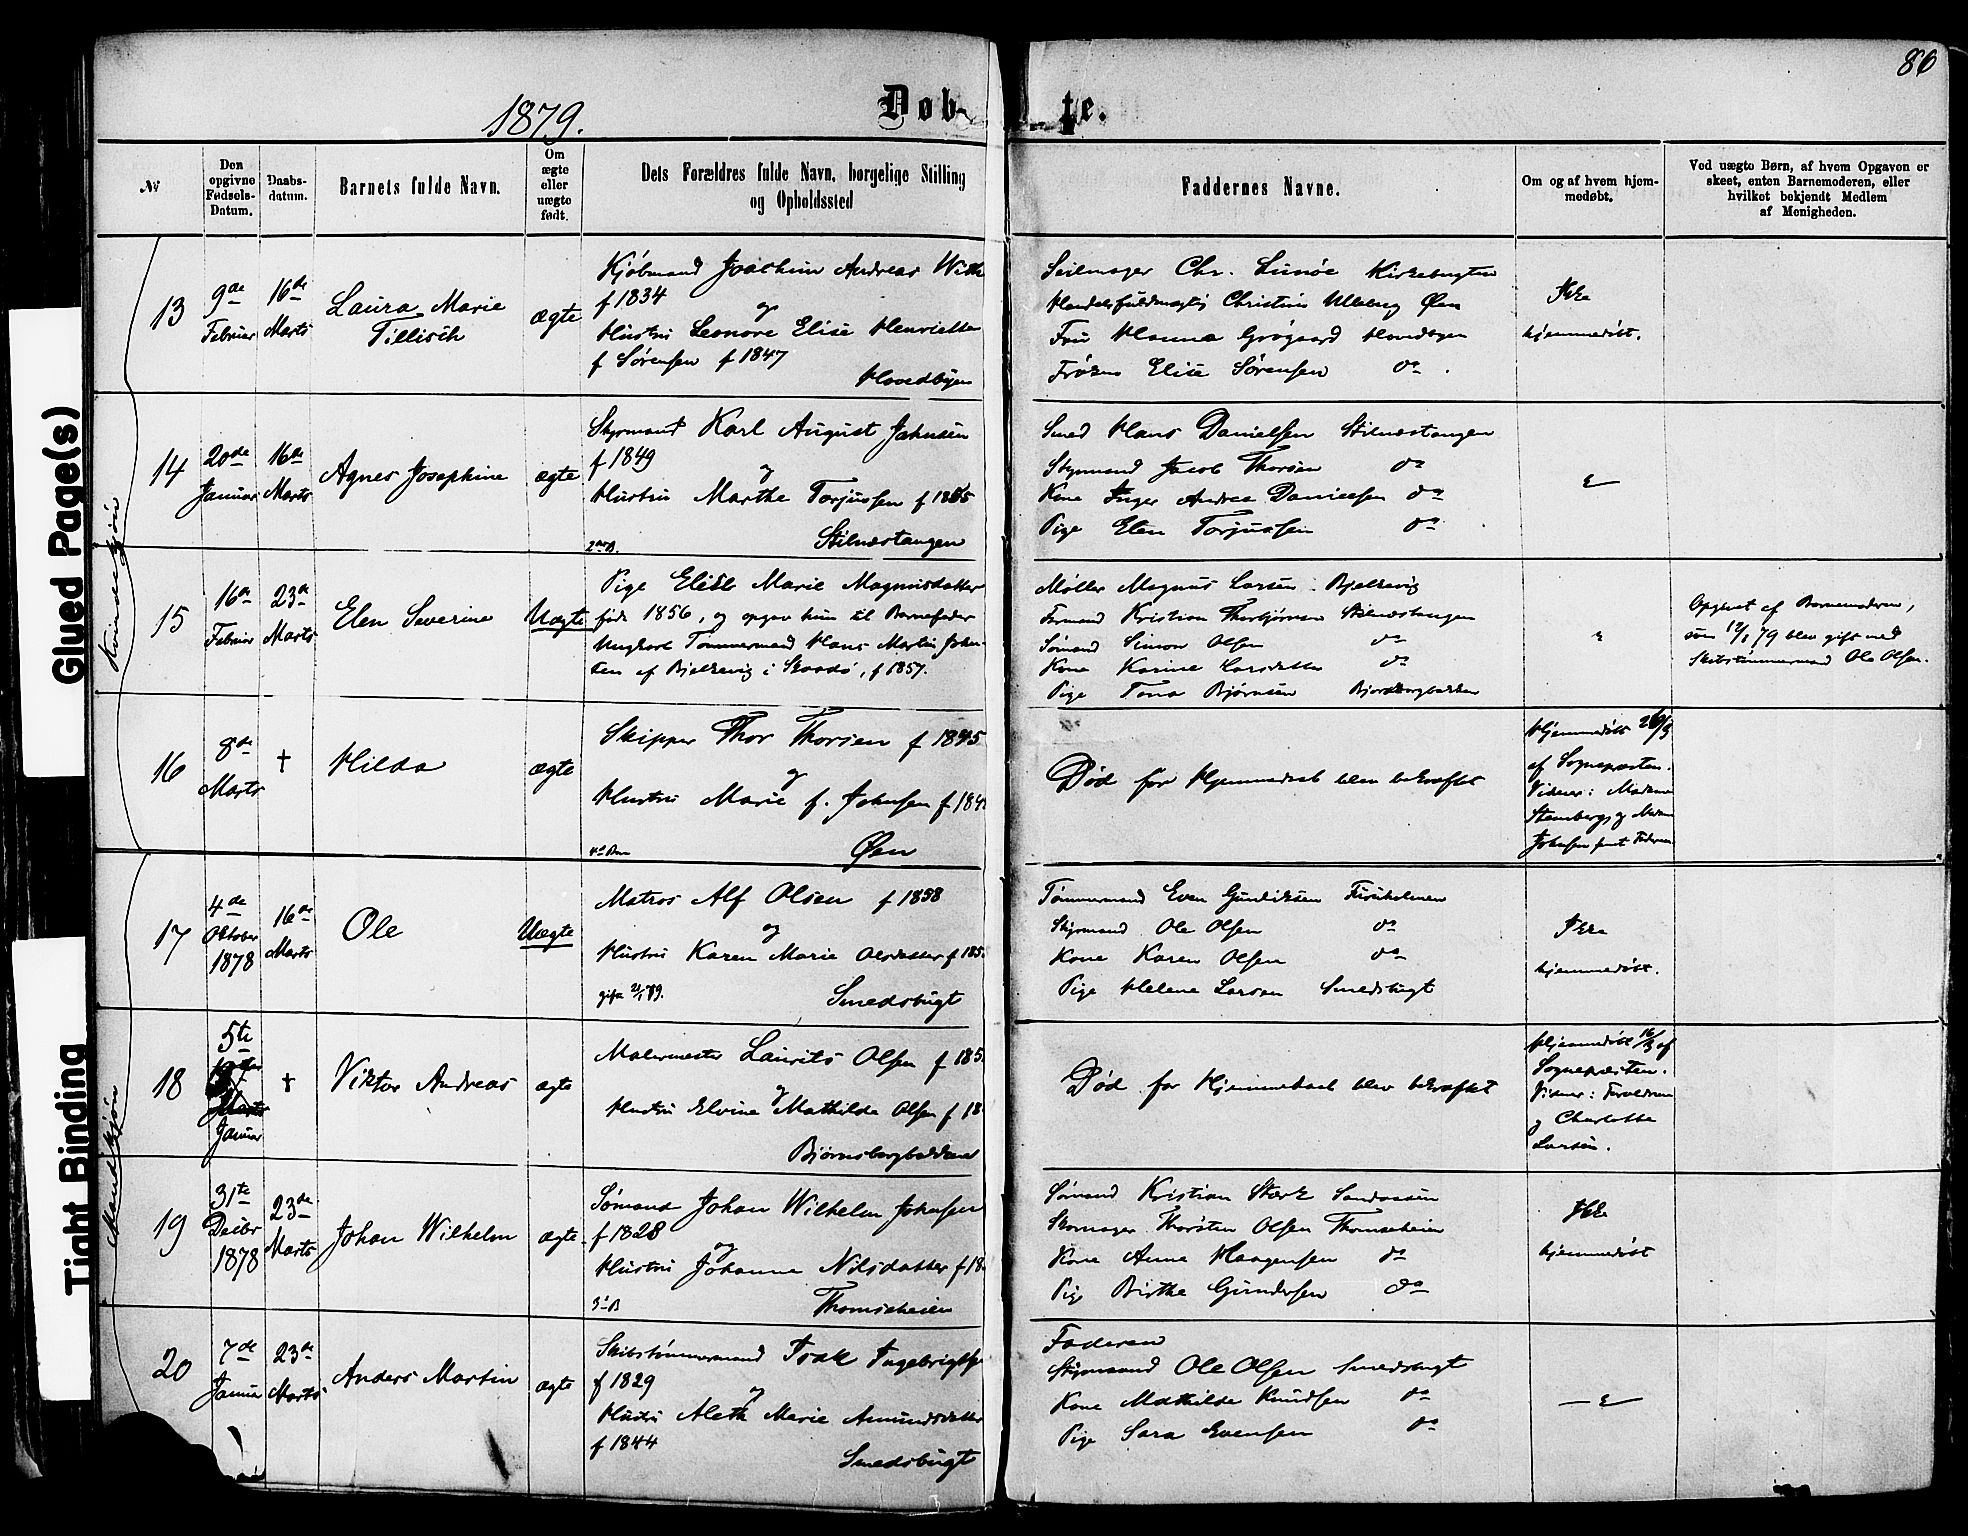 86
1879.
Døb-
te.
№
Den opgivne Fødsels-Datum.
Daabs-datum.
Barnets fulde Navn.
Om ægte eller uægte født.
Dets Forældres fulde Navn, borgelige Stilling
og Opholdssted
Faddernes Navne.
Om og af hvem hjem-
medøbt.
Ved uægte Børn, af hvem Opgaven er
skeet, enten Barnemoderen, eller
hvilket bekjendt Medlem
af Menigheden.
Kvindekjøn
13
9de Februar
16de Marts
Laura Marie
Tillisch
ægte
Kjøbmand Joachim Andreas
f 1834
og
Hustru Leonore Elise Henriette
f Sørensen f 1847
Hovedbyen
Seilmager Chr. Lunøe Kirkebugten
Handelsfuldmægtig Christian Ulleberg Øen
Fru Hanna Grøgaard Hovedbyen
Frøken Elise Sørensen do.
Ikke
hjemmedøbt.
14
20de Januar
16de Marts
Agnes Josephine
ægte
Styrmand Karl August Johnsen
f 1849
og
Hustru Marthe Torjussen f 1855
2det B. Stilnæstangen
Smed Hans Danielsen Stilnæstangen
Styrmand Jacob Thorsen do
Kone Inger Andrea Danielsen do
Pige Elen Torjussen do
15
16de Februar
23de Marts
Elen Severine
Uægte
Pige Elise Marie Magnusdatter
født 1856, og opgav hun til Barnefader
Ungkarl Tømmermand Hans Martin Johan-
sen af Bjelkevig i Skaadø, f 1857.
Møller Magnus Larsen Bjelkevig
Formand Kristian Thorbjørnsen Stilnæstangen
Sømand Simon Olsen do
Kone Karine Larsdatter do
Pige Tona Bjørnsen Bjørnsbergbakken
Opgivet af Barnemoderen,
som 12/1 79 blev gift med
Skibstømmermand Ole Olsen.
16
8de Marts
†
Hilda
ægte
Skipper Thor Thorsen f 1845
og
Hustru Marie f. Johnsen f 184
4de Barn Øen
Død før Hjemmedaab blev bekræftet
Hjemmedøbt 26/3
af Sognepresten.
Vidner: Madame
Stamberg og Madam
Johnsen samt Faderen
Mandkjøn
17
4de Oktober 1878
16de Marts
Ole
Uægte
Matros Alf Olsen f 1858
og
Hustru Karen Marie Olsdatter f 185
gift 2/1 79. Smedsbugt
Tømmermand Even Gundersen Furuholmen
Styrmand Ole Olsen do
Kone Karen Olsen do
Pige Helene Larsen Smedsbugt
Ikke
hjemmedøbt.
18
5te
Januar
†
Viktor Andreas
ægte
Malermester Laurits Olsen f 185
og
Hustru Elvine Mathilde Olsen f 18
Bjørnsbergbakken
Død før Hjemmedaab blev bekræftet
Hjemmedøbt 16/3 af
Sognepresten.
Vidner: Forældrene
og Charlotte
Larsen.
19
31te Decbr 1878
23de Marts
Johan Wilhelm
ægte
Sømand Johan Wilhelm Johnsen
f 1828
og
Hustru Johanne Nilsdatter f 18
3de B Thomseheien
Sømand Kristian Stærk
Skomager Thorsten Olsen Thomseheien
Kone Anne Haagensen do
Pige Birthe Gundersen do
Ikke
hjemmedøbt
20
7de Januar
23de Marts
Anders Martin
ægte
Skibstømmermand Isak Ingebrigtsen
f 1829
og
Hustru Aleth Marie Amundsdatter
f 1844
Smedsbugt
Faderen
Styrmand Ole Olsen Smedsbugt
Kone Mathilde Knudsen do
Pige Sara Evensen do
Glued Page(s)
Tight Binding